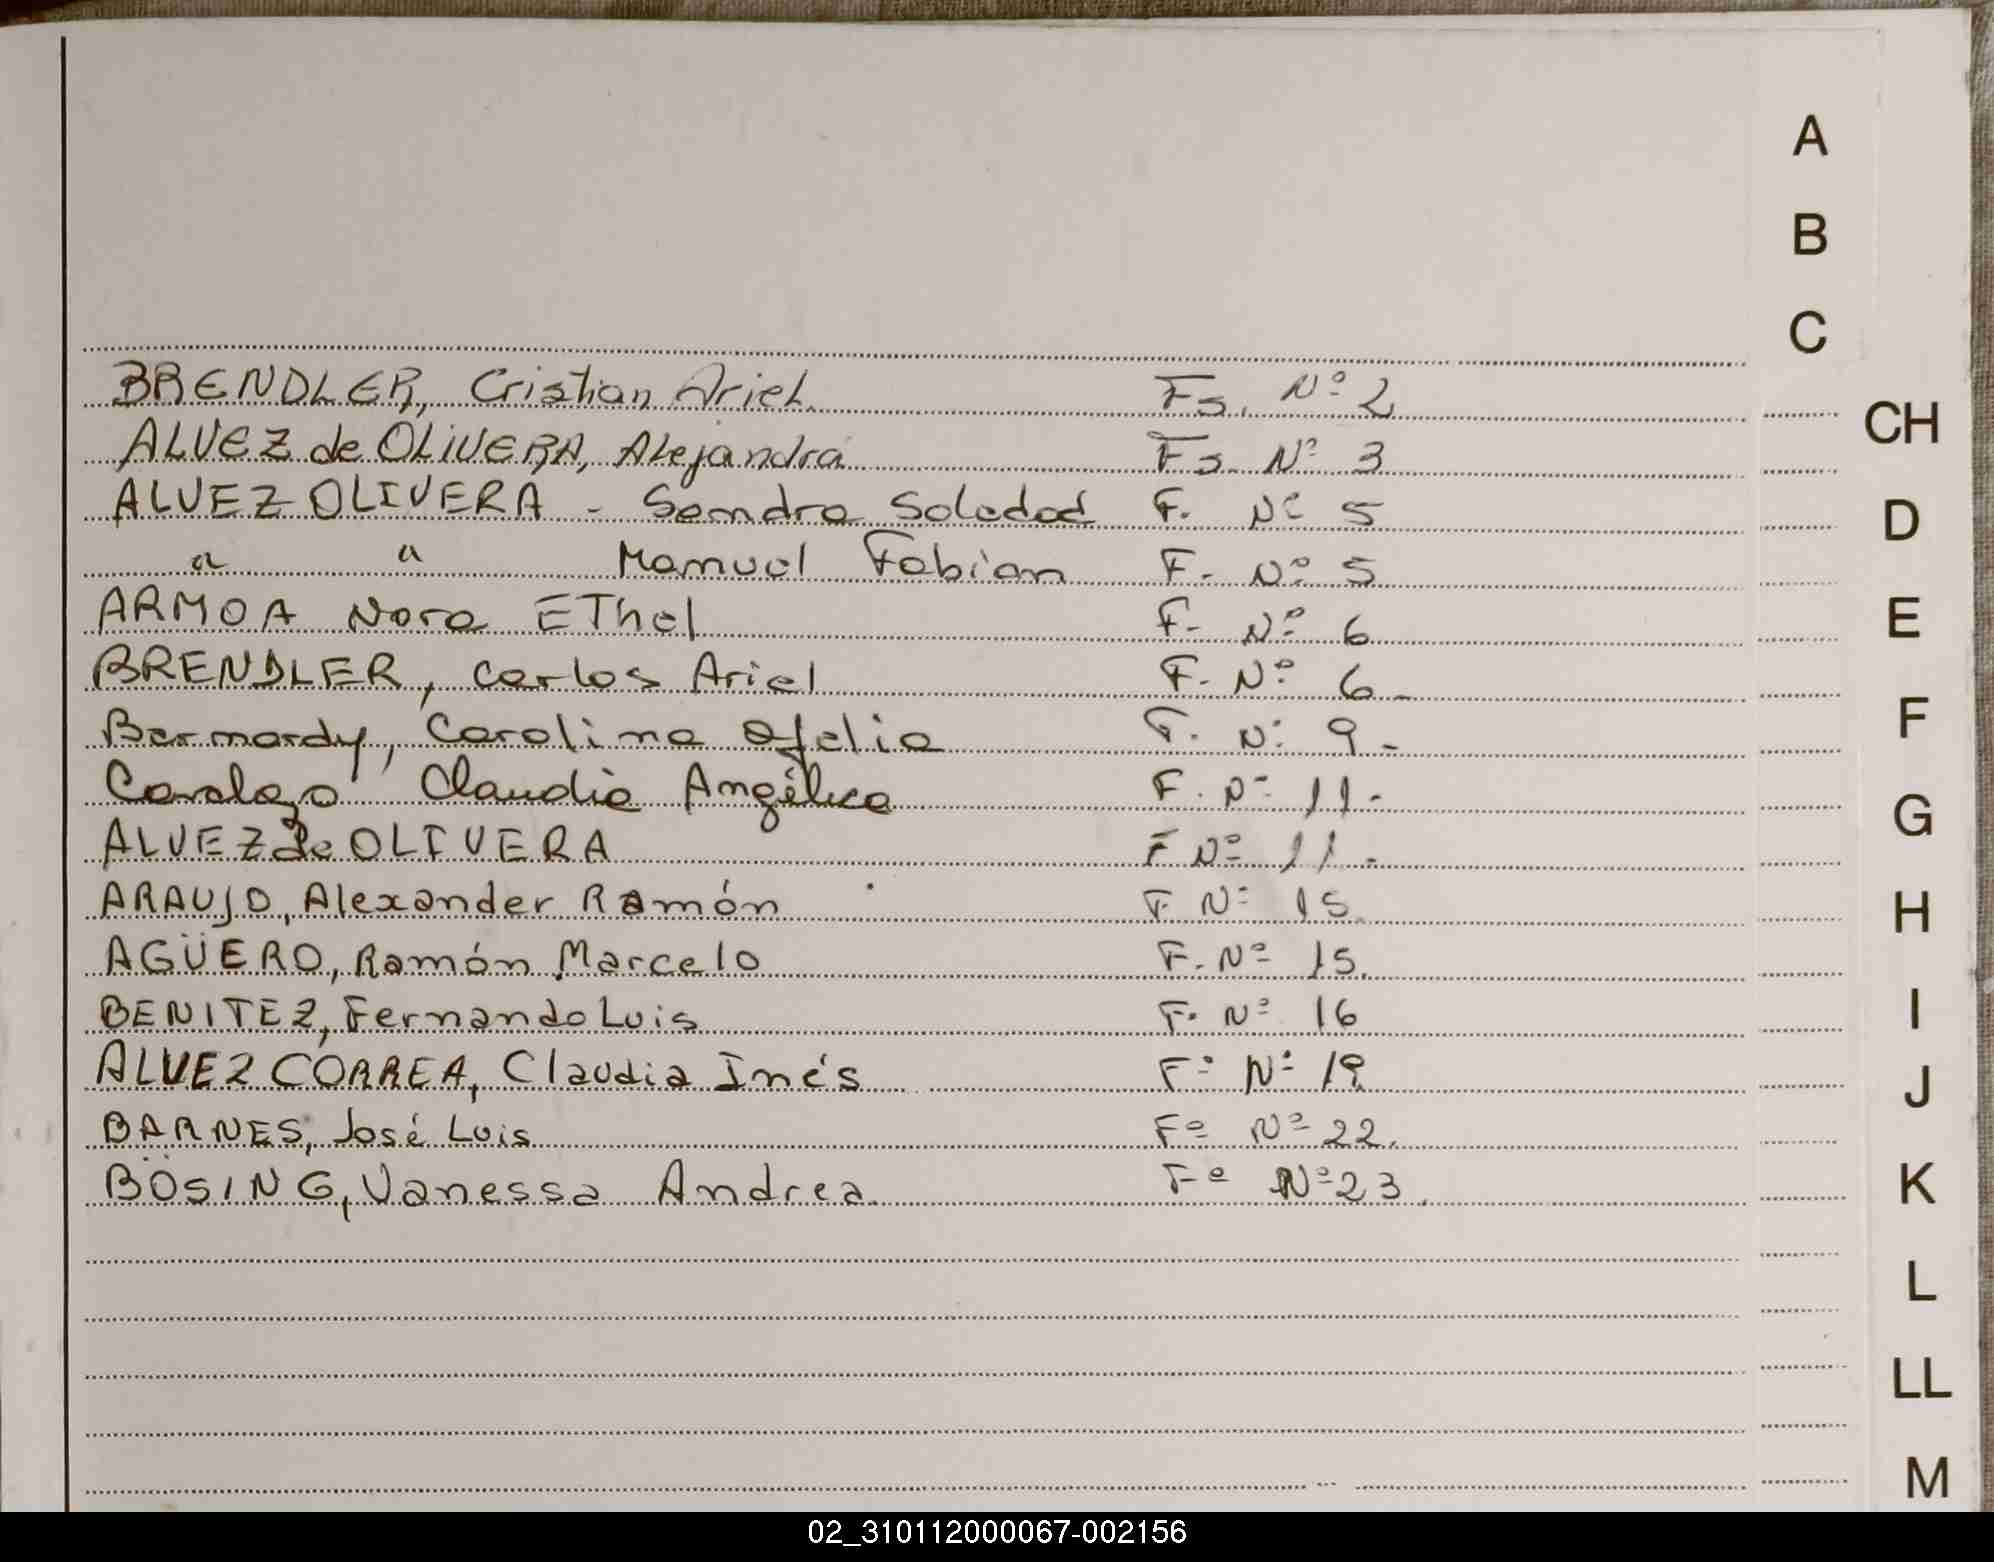 A
B
C
BRENDLER, Cristian Ariel. Fs. Nº 2
CH
ALVEZ de OLIVERA, Alejandra Fs. Nº 3
ALVEZ OLIVERA - Sandra Soledad F. Nº 5
D
" " Manuel Fabian F. Nº 5
ARMOA Nora EThel F- Nº 6
E
BRENDLER, Carlos Ariel F. Nº 6-
Bernardy, Carolina Ofelia F. Nº 9-
F
Claudia Angélica F. Nº 11-
G
ALVEZ de OLIVERA F Nº 11-
ARAUJO, Alexander Ramón F. Nº 15
H
AGÜERO, Ramón Marcelo F. Nº 15.
BENITEZ, Fernando Luis F. Nº 16
I
ALVEZ CORREA, Claudia Inés Fº Nº 19
J
BARNES, José Luis Fº Nº 22.
BÖSING, Vanessa Andrea Fº Nº 23.
K
L
LL
M
02_310112000067-002156